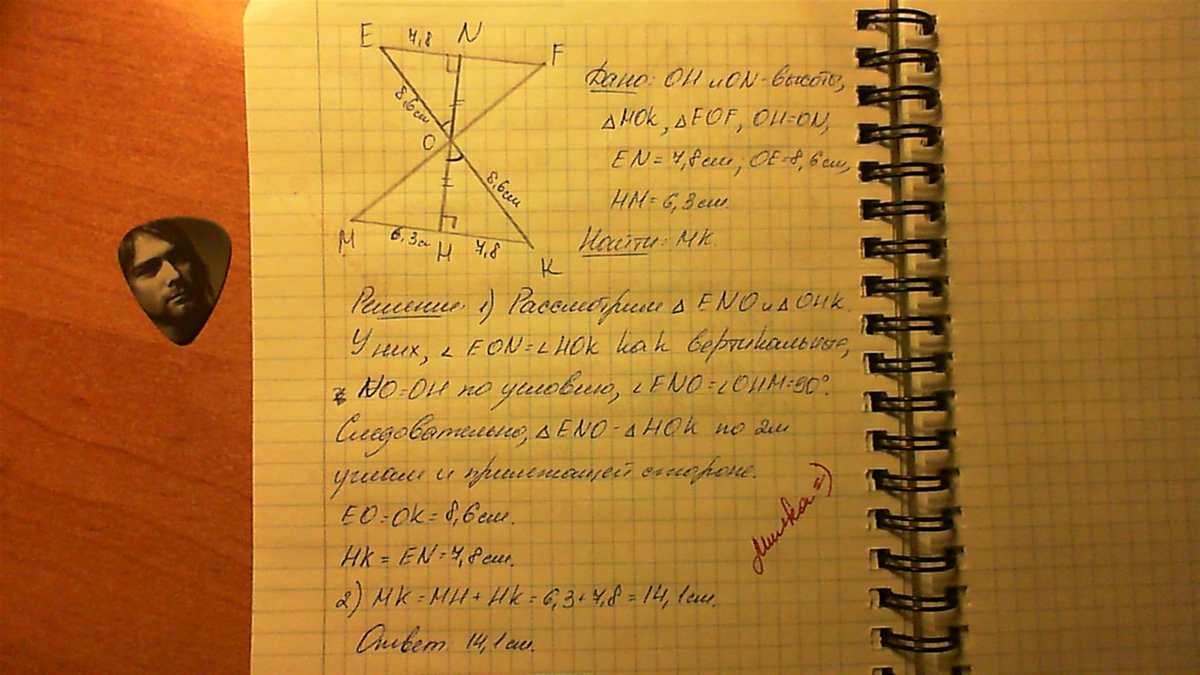 E 7,8 N F
8,6см
O
8,6см
M 6,3с H 7,8 K
Дано: OH и ON - высоты,
△MOK, △EOF, OH=ON,
EN = 7,8см, OE=8,6см,
HM = 6,3см.
Найти: MK.
Решение: 1) Рассмотрим △ ENO и △ OHK.
У них, ∠ EON=∠HOK как вертикальные,
NO=OH по условию, ∠ENO=∠OHM=90°.
Следовательно, △ENO - △HOK по 2м
углам и прилежащей стороне.
EO=OK=8,6см.
HK = EN=7,8см.
2) MK = MH + HK = 6,3+7,8 = 14,1см.
Ответ: 14,1см.
Милка =)